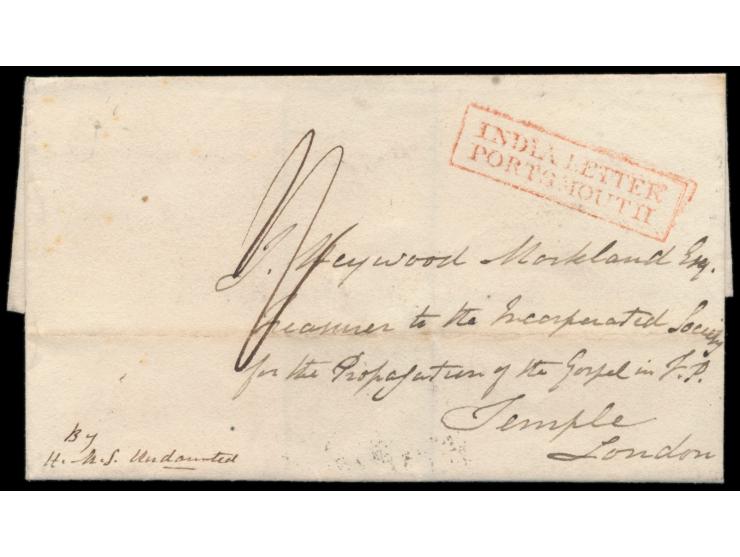 INDIA LETTER
PORTSMOUTH
J. Heywood Markland Esq.
Treasurer to the Incorporated Society
for the Propagation of the Gospel in F.P.
Temple
London
By
H.M.S. Undaunted